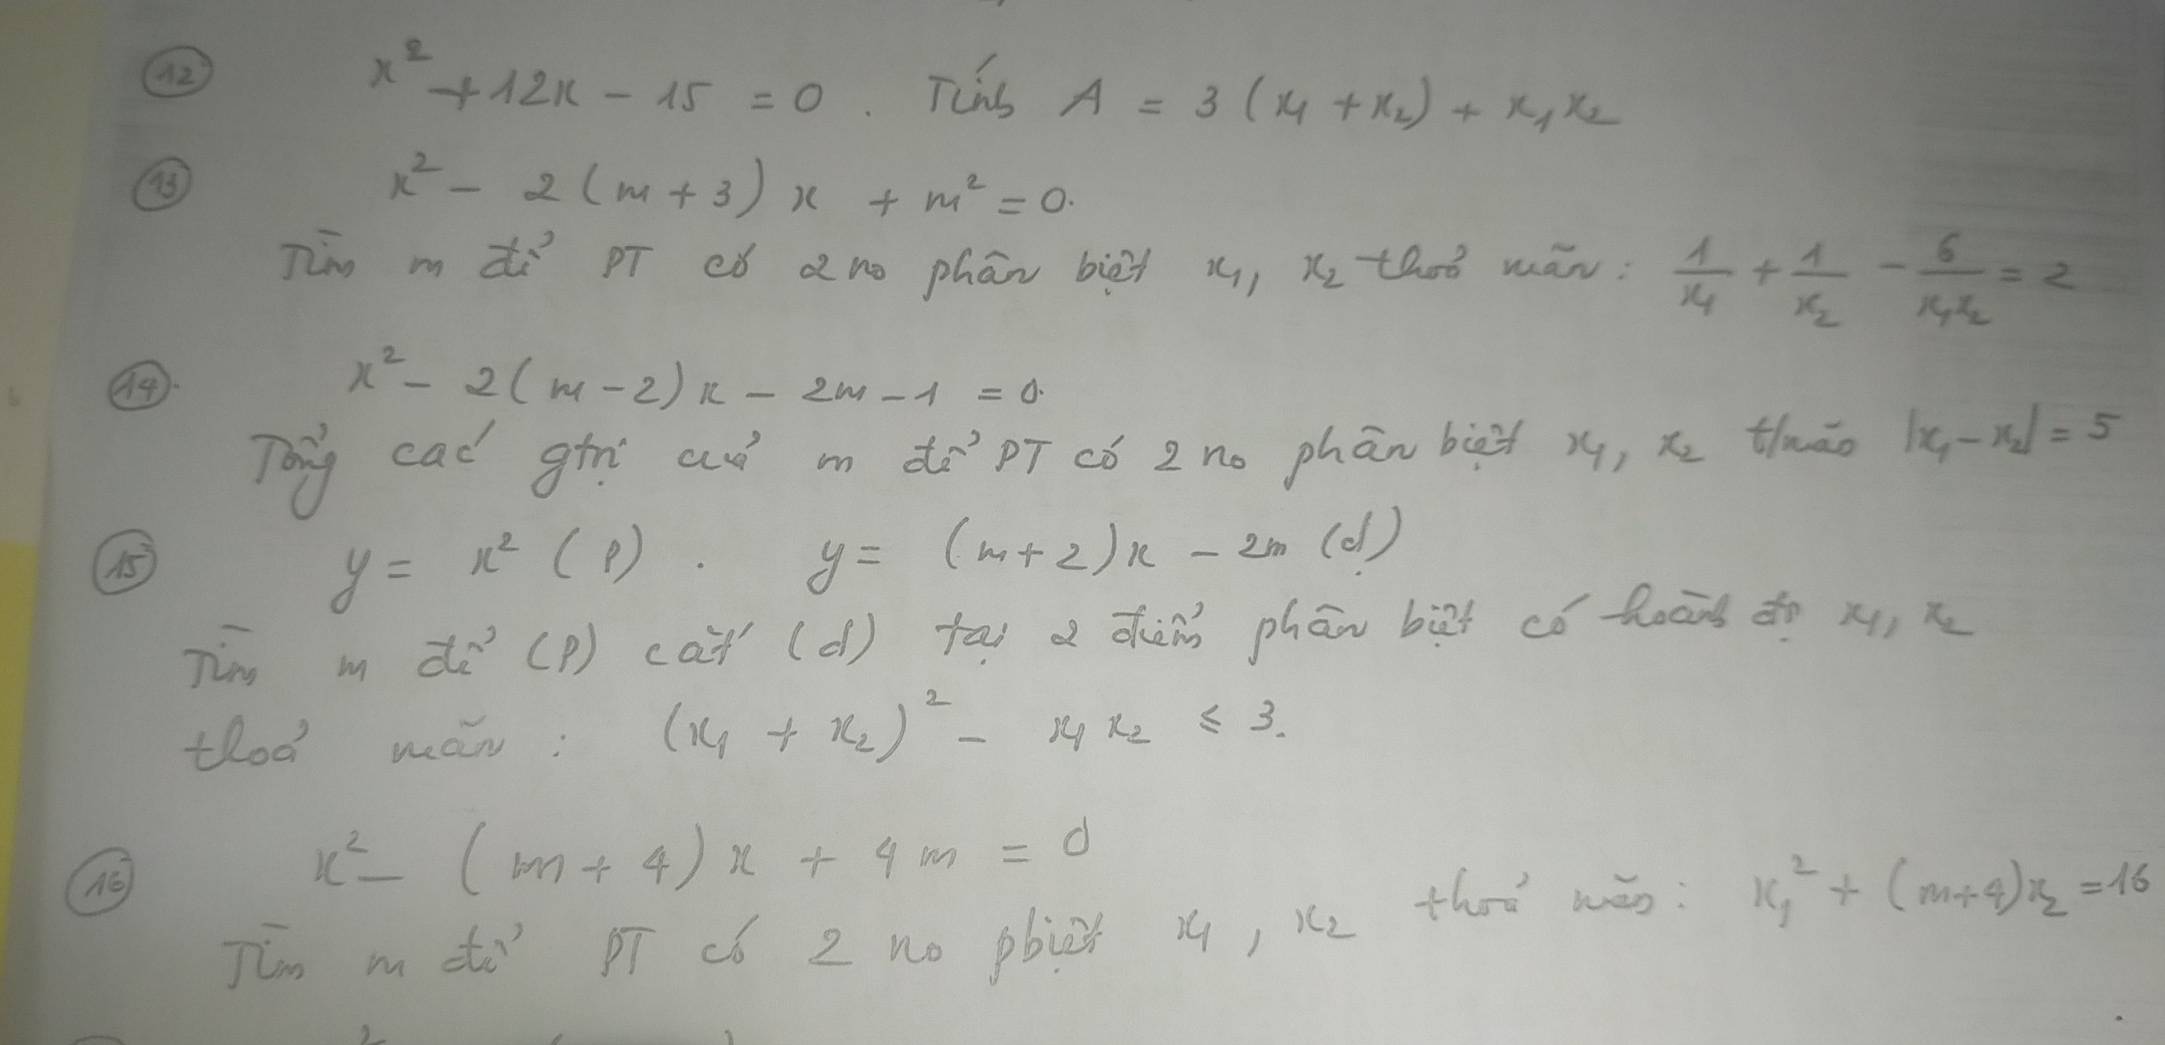 12 x² + 12x - 15 = 0 . Tính A = 3(x₁ + x₂) + x₁x₂
13 x² - 2(m+3)x + m² = 0.
Tìm m để PT có 2 no phân biệt x₁, x₂ thoả mãn : 1/x₁ + 1/x₂ - 6/x₁x₂ = 2
14. x² - 2(m-2)x - 2m - 1 = 0.
Tổng các gtrị củả m để PT có 2 no phân biệt x₁, x₂ t/mãn |x₁ - x₂| = 5
15 y = x² (P) . y = (m+2)x - 2m (d)
Tìm m để (P) cắt (d) tại 2 điểm phân biệt có hoành độ x₁, x₂
thoả mãn : (x₁ + x₂)² - x₁x₂ ≤ 3.
16 x² - (m+4)x + 4m = 0
Tìm m để PT có 2 no pbiệt x₁, x₂ thoả mãn : x₁² + (m+4)x₂ = 16